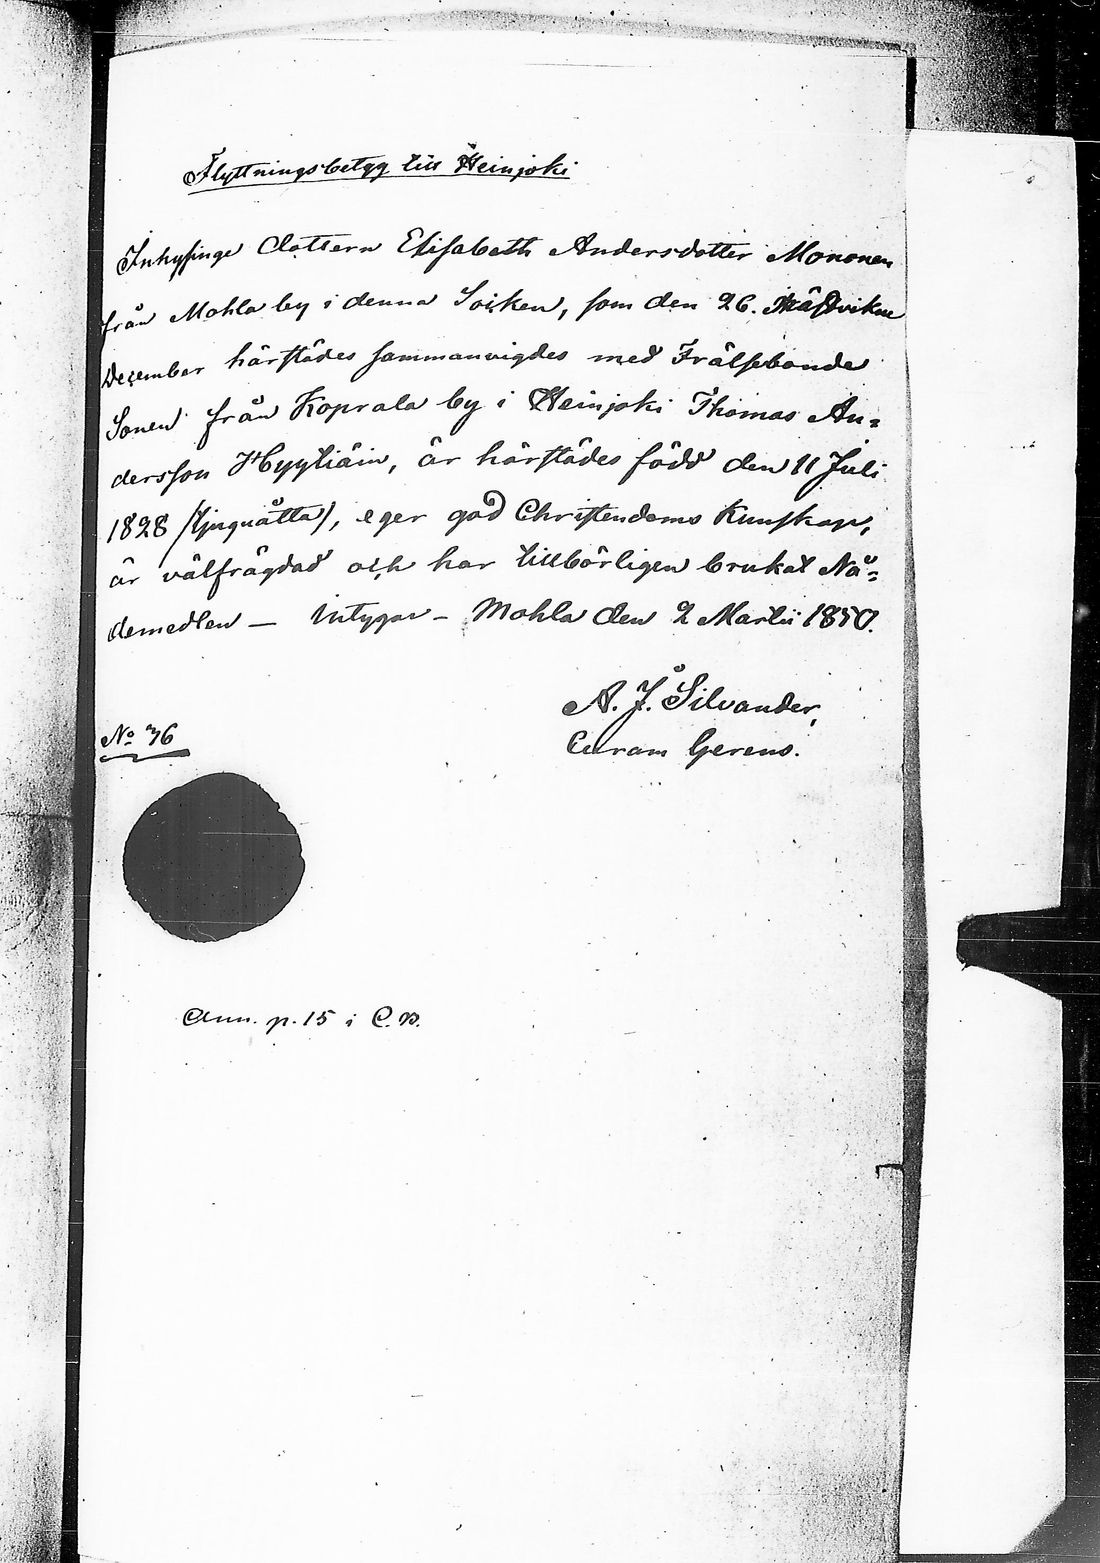 Flyttningsbetyg till Heinjoki
Inhysinge dottern Elisabeth Andersdotter Mononen
från Mohla by i denna Socken, som den 26. nästvikne
December härstädes sammanvigdes med Frälsebonde
Sonen från Koprala by i Heinjoki Thomas An=
dersson Hyytiäin, är härstädes född den 11 Juli
1828 /tjuguåtta/, eger god Christendoms Kunskap,
är välfrägdad och har tillbörligen brukat Nå=
demedlen — intygar – Mohla den 2 Martii 1850.
A. J. Silvander,
Curam Gerens.
No 36
Ann. p. 15 i C. B.